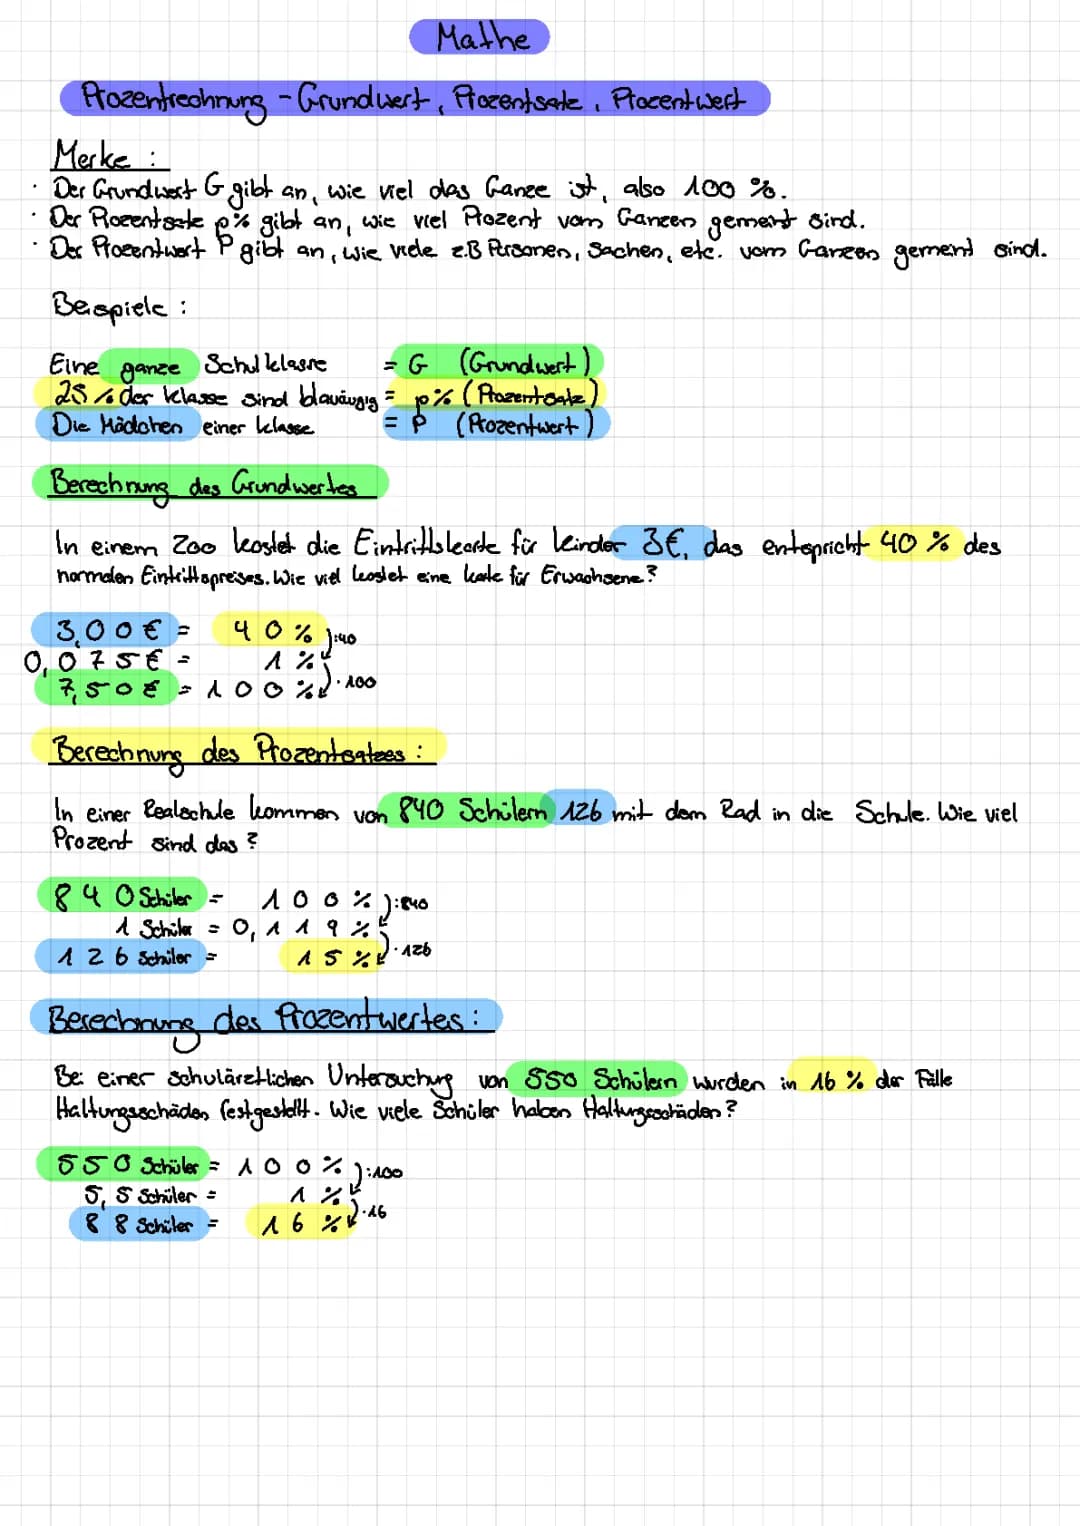 Mathe
Prozentrechnung - Grundwert, Prozentsatz, Prozentwert
Merke :
· Der Grundwert G gibt an, wie viel das Ganze ist, also 100 %.
· Der Prozentsatz p% gibt an, wie viel Prozent vom Ganzen gemeint sind.
· Der Prozentwert P gibt an, wie viele z.B Personen, Sachen, etc. vom Ganzen gemeint sind.
Beispiele :
Eine ganze Schulklasse = G (Grundwert)
25 % der Klasse sind blauäugig = p% (Prozentsatz)
Die Mädchen einer Klasse = P (Prozentwert)
Berechnung des Grundwertes
In einem Zoo kostet die Eintrittskarte für Kinder 3€, das entspricht 40 % des
normalen Eintrittspreises. Wie viel kostet eine Karte für Erwachsene?
3,00 € = 40 % ):40
0,075 € = 1 %
7,50 € = 100 % )·100
Berechnung des Prozentsatzes :
In einer Realschule kommen von 840 Schülern 126 mit dem Rad in die Schule. Wie viel
Prozent sind das ?
840 Schüler = 100 % ):840
1 Schüler = 0,119 %
126 Schüler = 15 % )·126
Berechnung des Prozentwertes :
Bei einer schulärztlichen Untersuchung von 550 Schülern wurden in 16 % der Fälle
Haltungsschäden festgestellt. Wie viele Schüler haben Haltungsschäden?
550 Schüler = 100 % ):100
5,5 Schüler = 1 %
88 Schüler = 16 % )·16